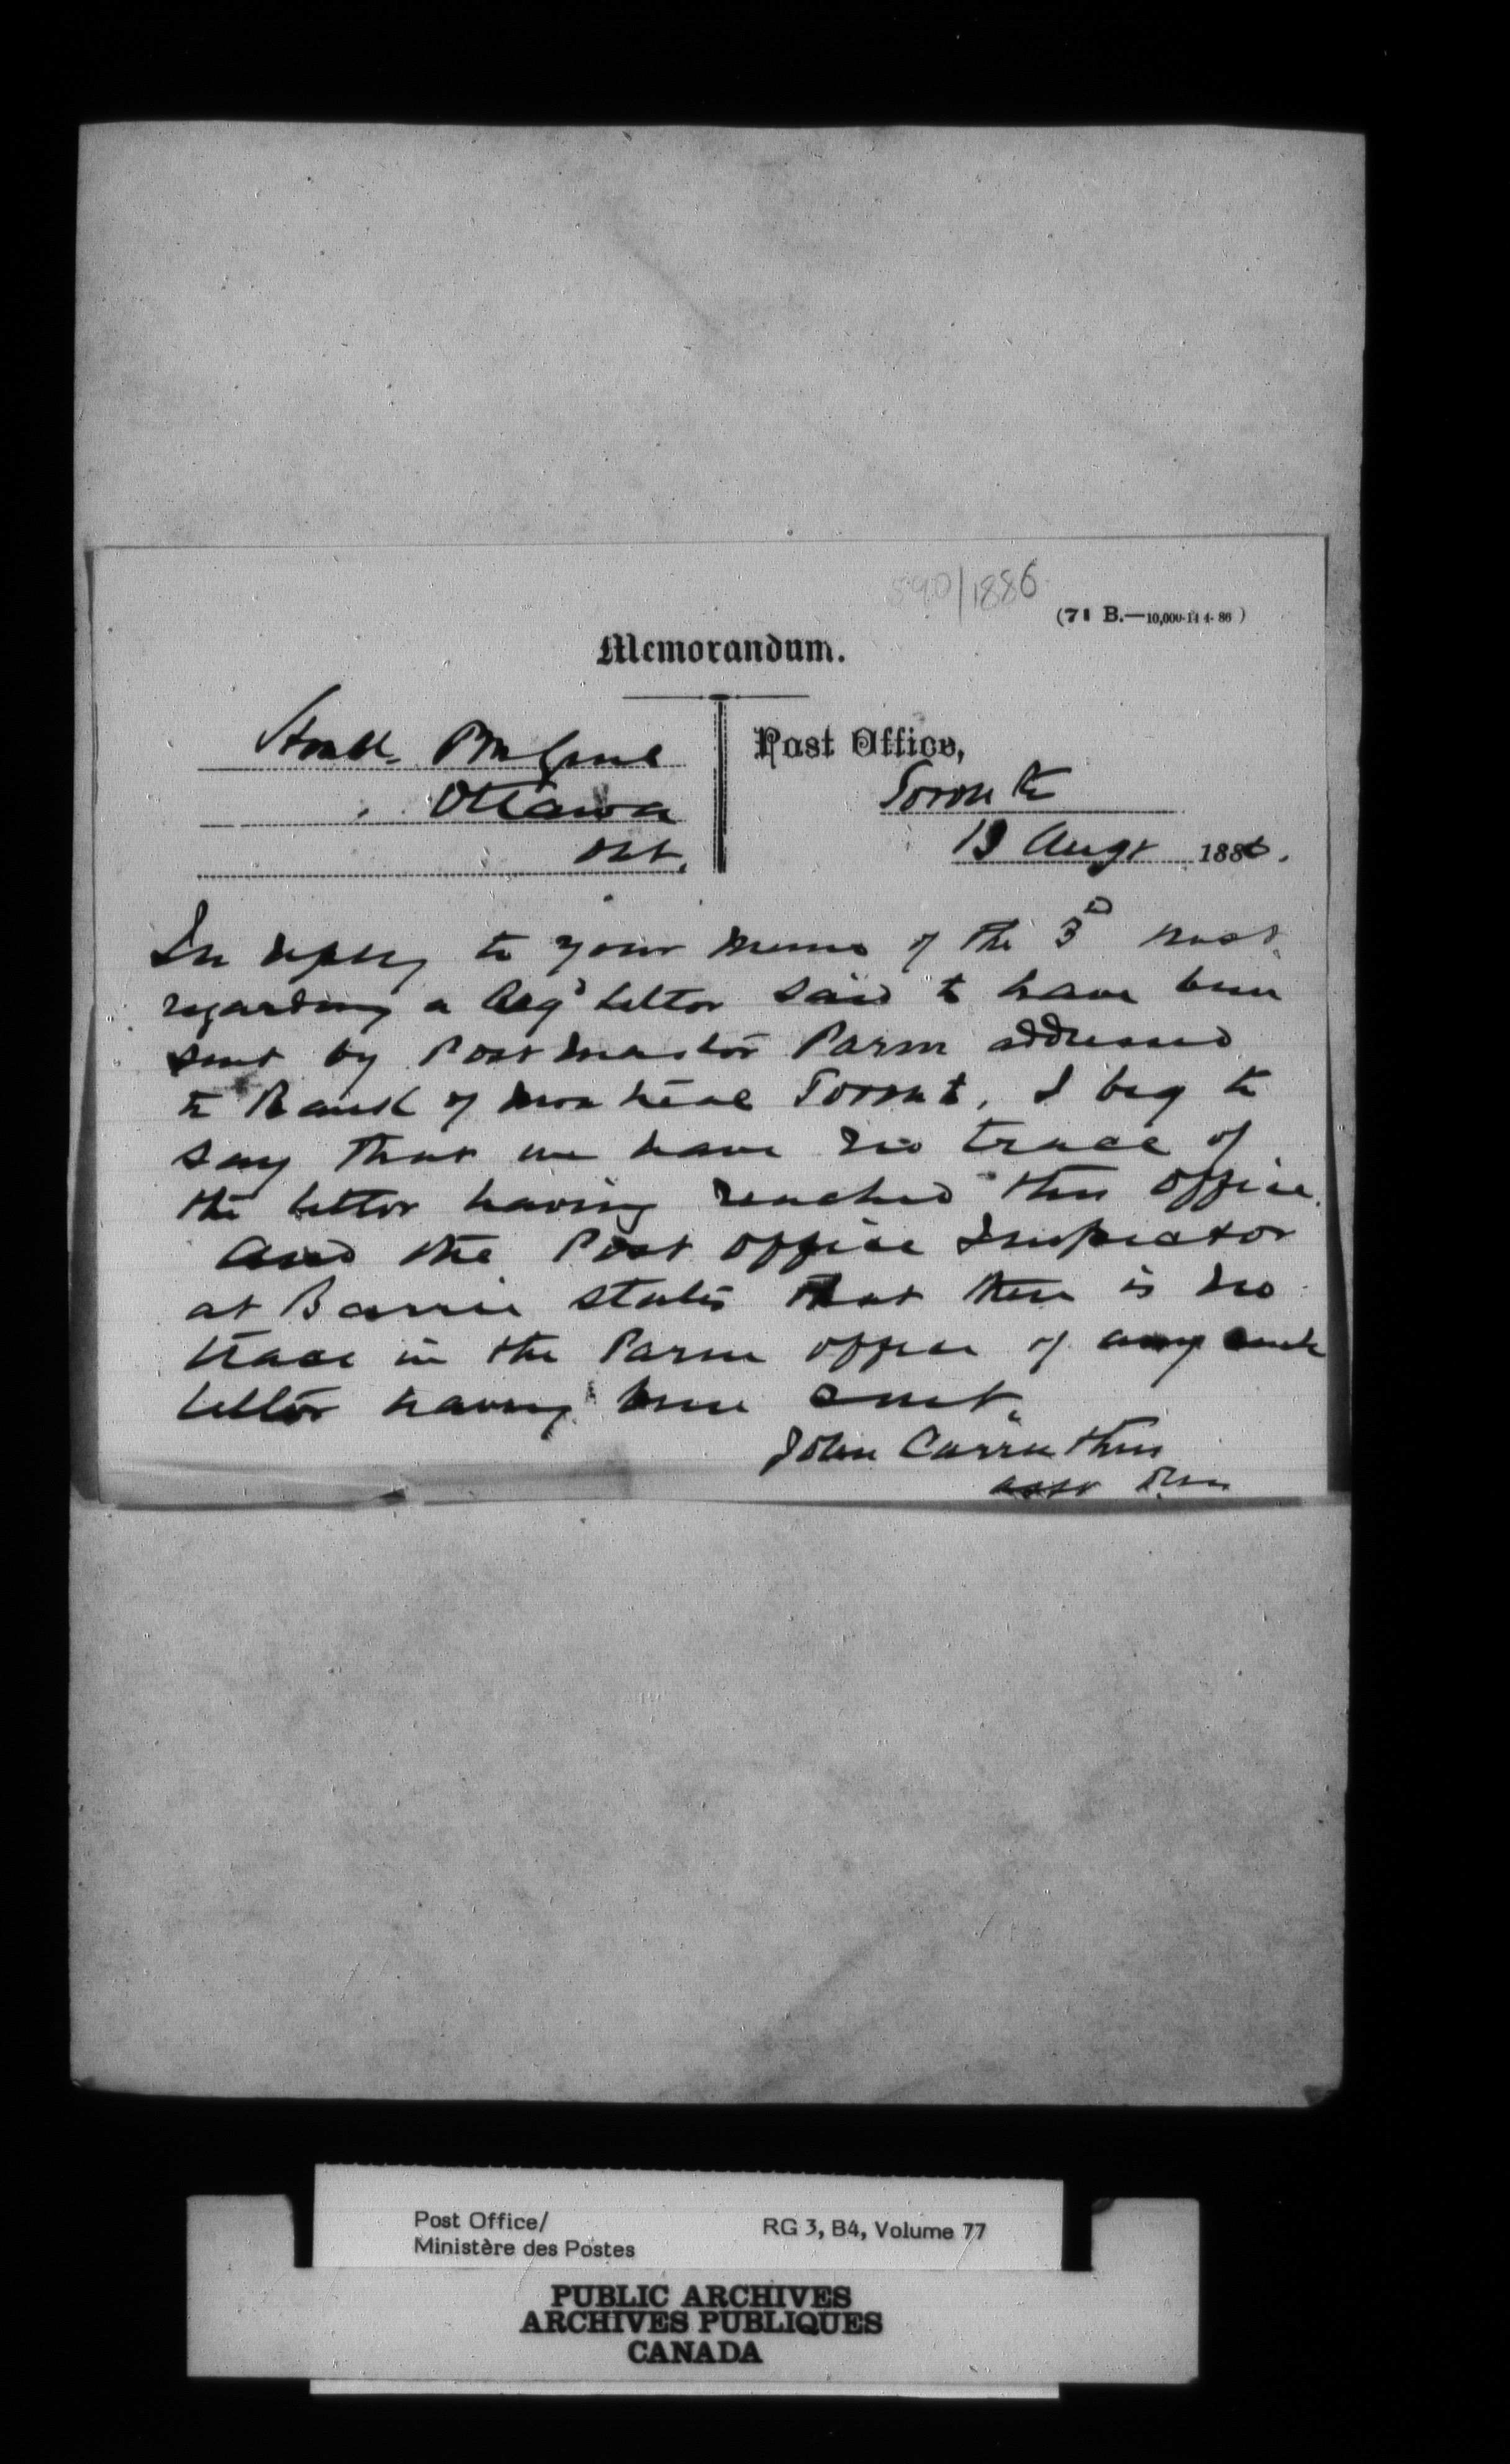 590/1886
(71 B.—10,000-14 4-86)
Memorandum.
Honbl. PMGenl
Post Office,
Ottawa
Toronto
Ont.
13 Augt 1886.
In reply to your memo of the 3D inst.
regarding a Regd letter said to have been
sent by Postmaster Parm addressed
to Bank of Montreal Toronto, I beg to
say that we have no trace of
the letter having reached this office.
and the Post Office Inspector
at Barrie states that there is no
trace in the Parm office of any such
letter having been sent.
John Carruthers
asst P.M.
Post Office/
Ministère des Postes
RG 3, B4, Volume 77
PUBLIC ARCHIVES
ARCHIVES PUBLIQUES
CANADA